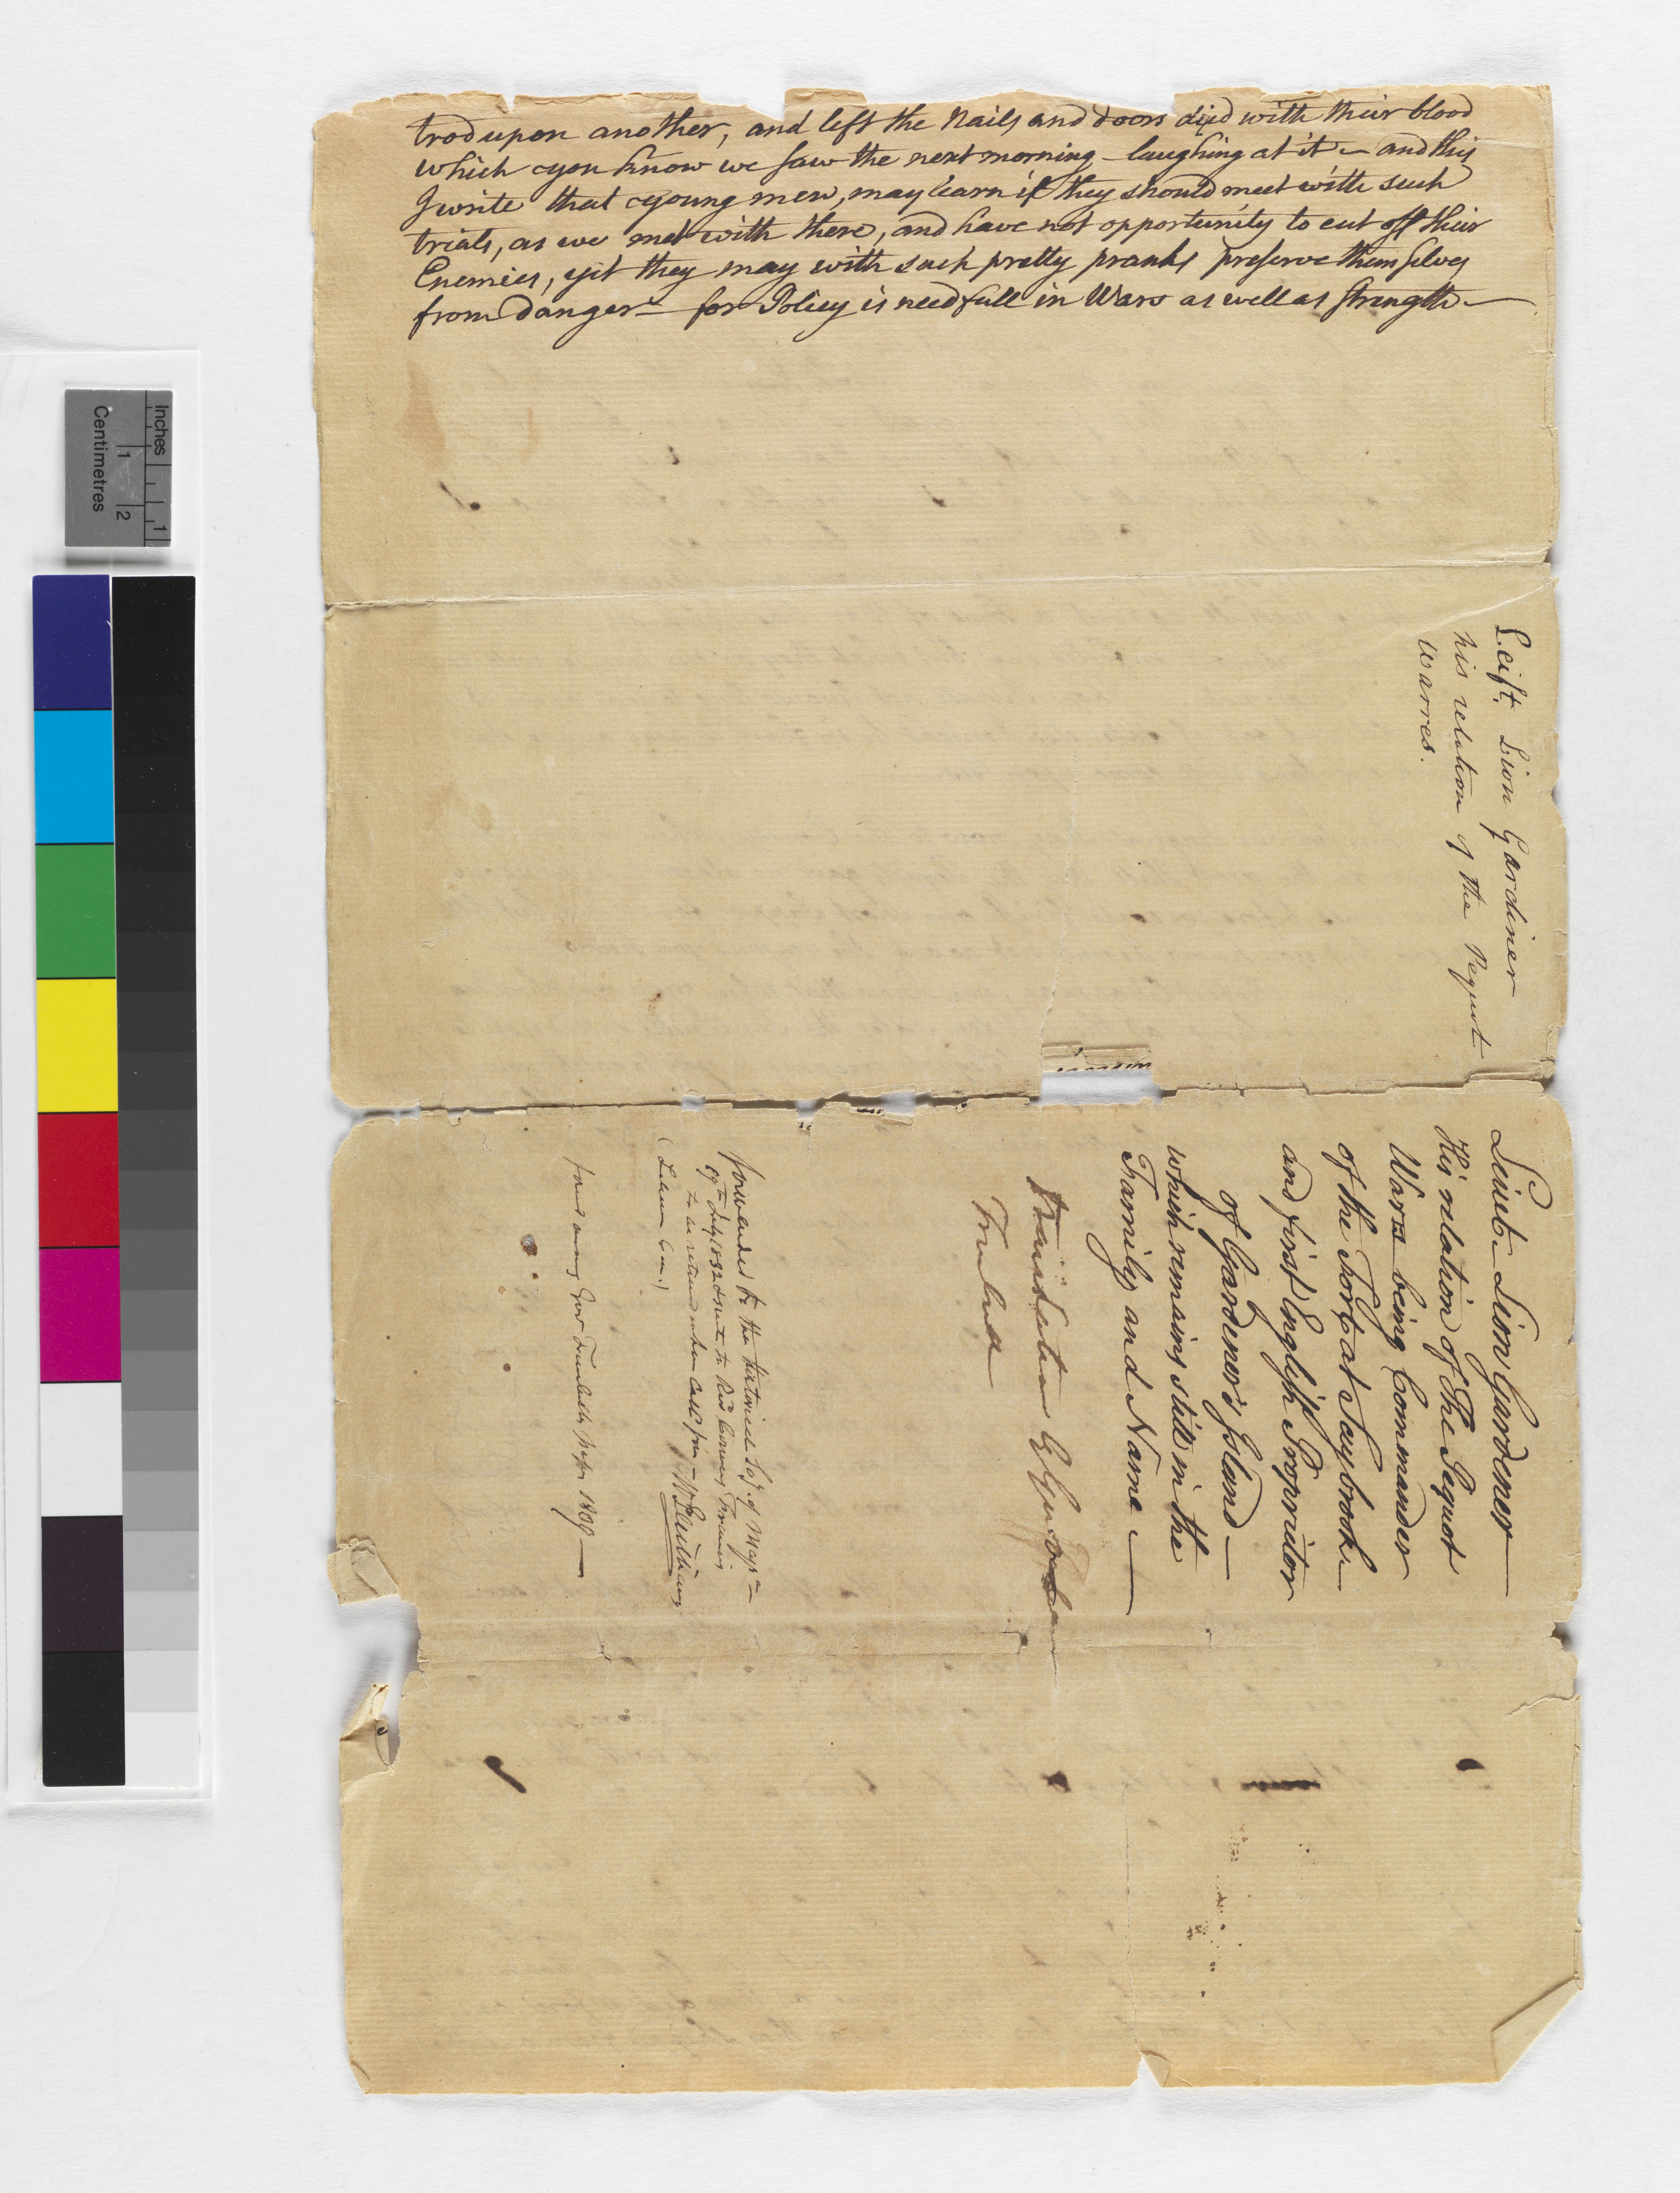 trod upon another, and left the Nails and doors died with their blood
which you know we saw the next morning - laughing at it - and this
I write that young men, may learn if they should meet with such
trials, as we met with there, and have not opportunity to cut off their
Enemies, yet they may with such pretty pranks preserve themselves
from danger - for Policy is needfull in Wars as well as Strength -
Leift. Lion Gardiner
his relation of the Pequot
Warres.
Lieut. Lion Gardener
His relation of the Pequot
Wars being Commander
of the Fort at Saybrook
and first English Proprietor
of Gardener's Island -
which remains still in the
Family and Name -
Trumbull
forwarded to the Historical Socy. of Massts -
9th July 1832 & sent to Rev Convers Francis
to be returned when call for - W T Williams
(Lebanon Con.)
found among Gov Trumbulls papers 1809 -
Inches
1
Centimetres
1
2